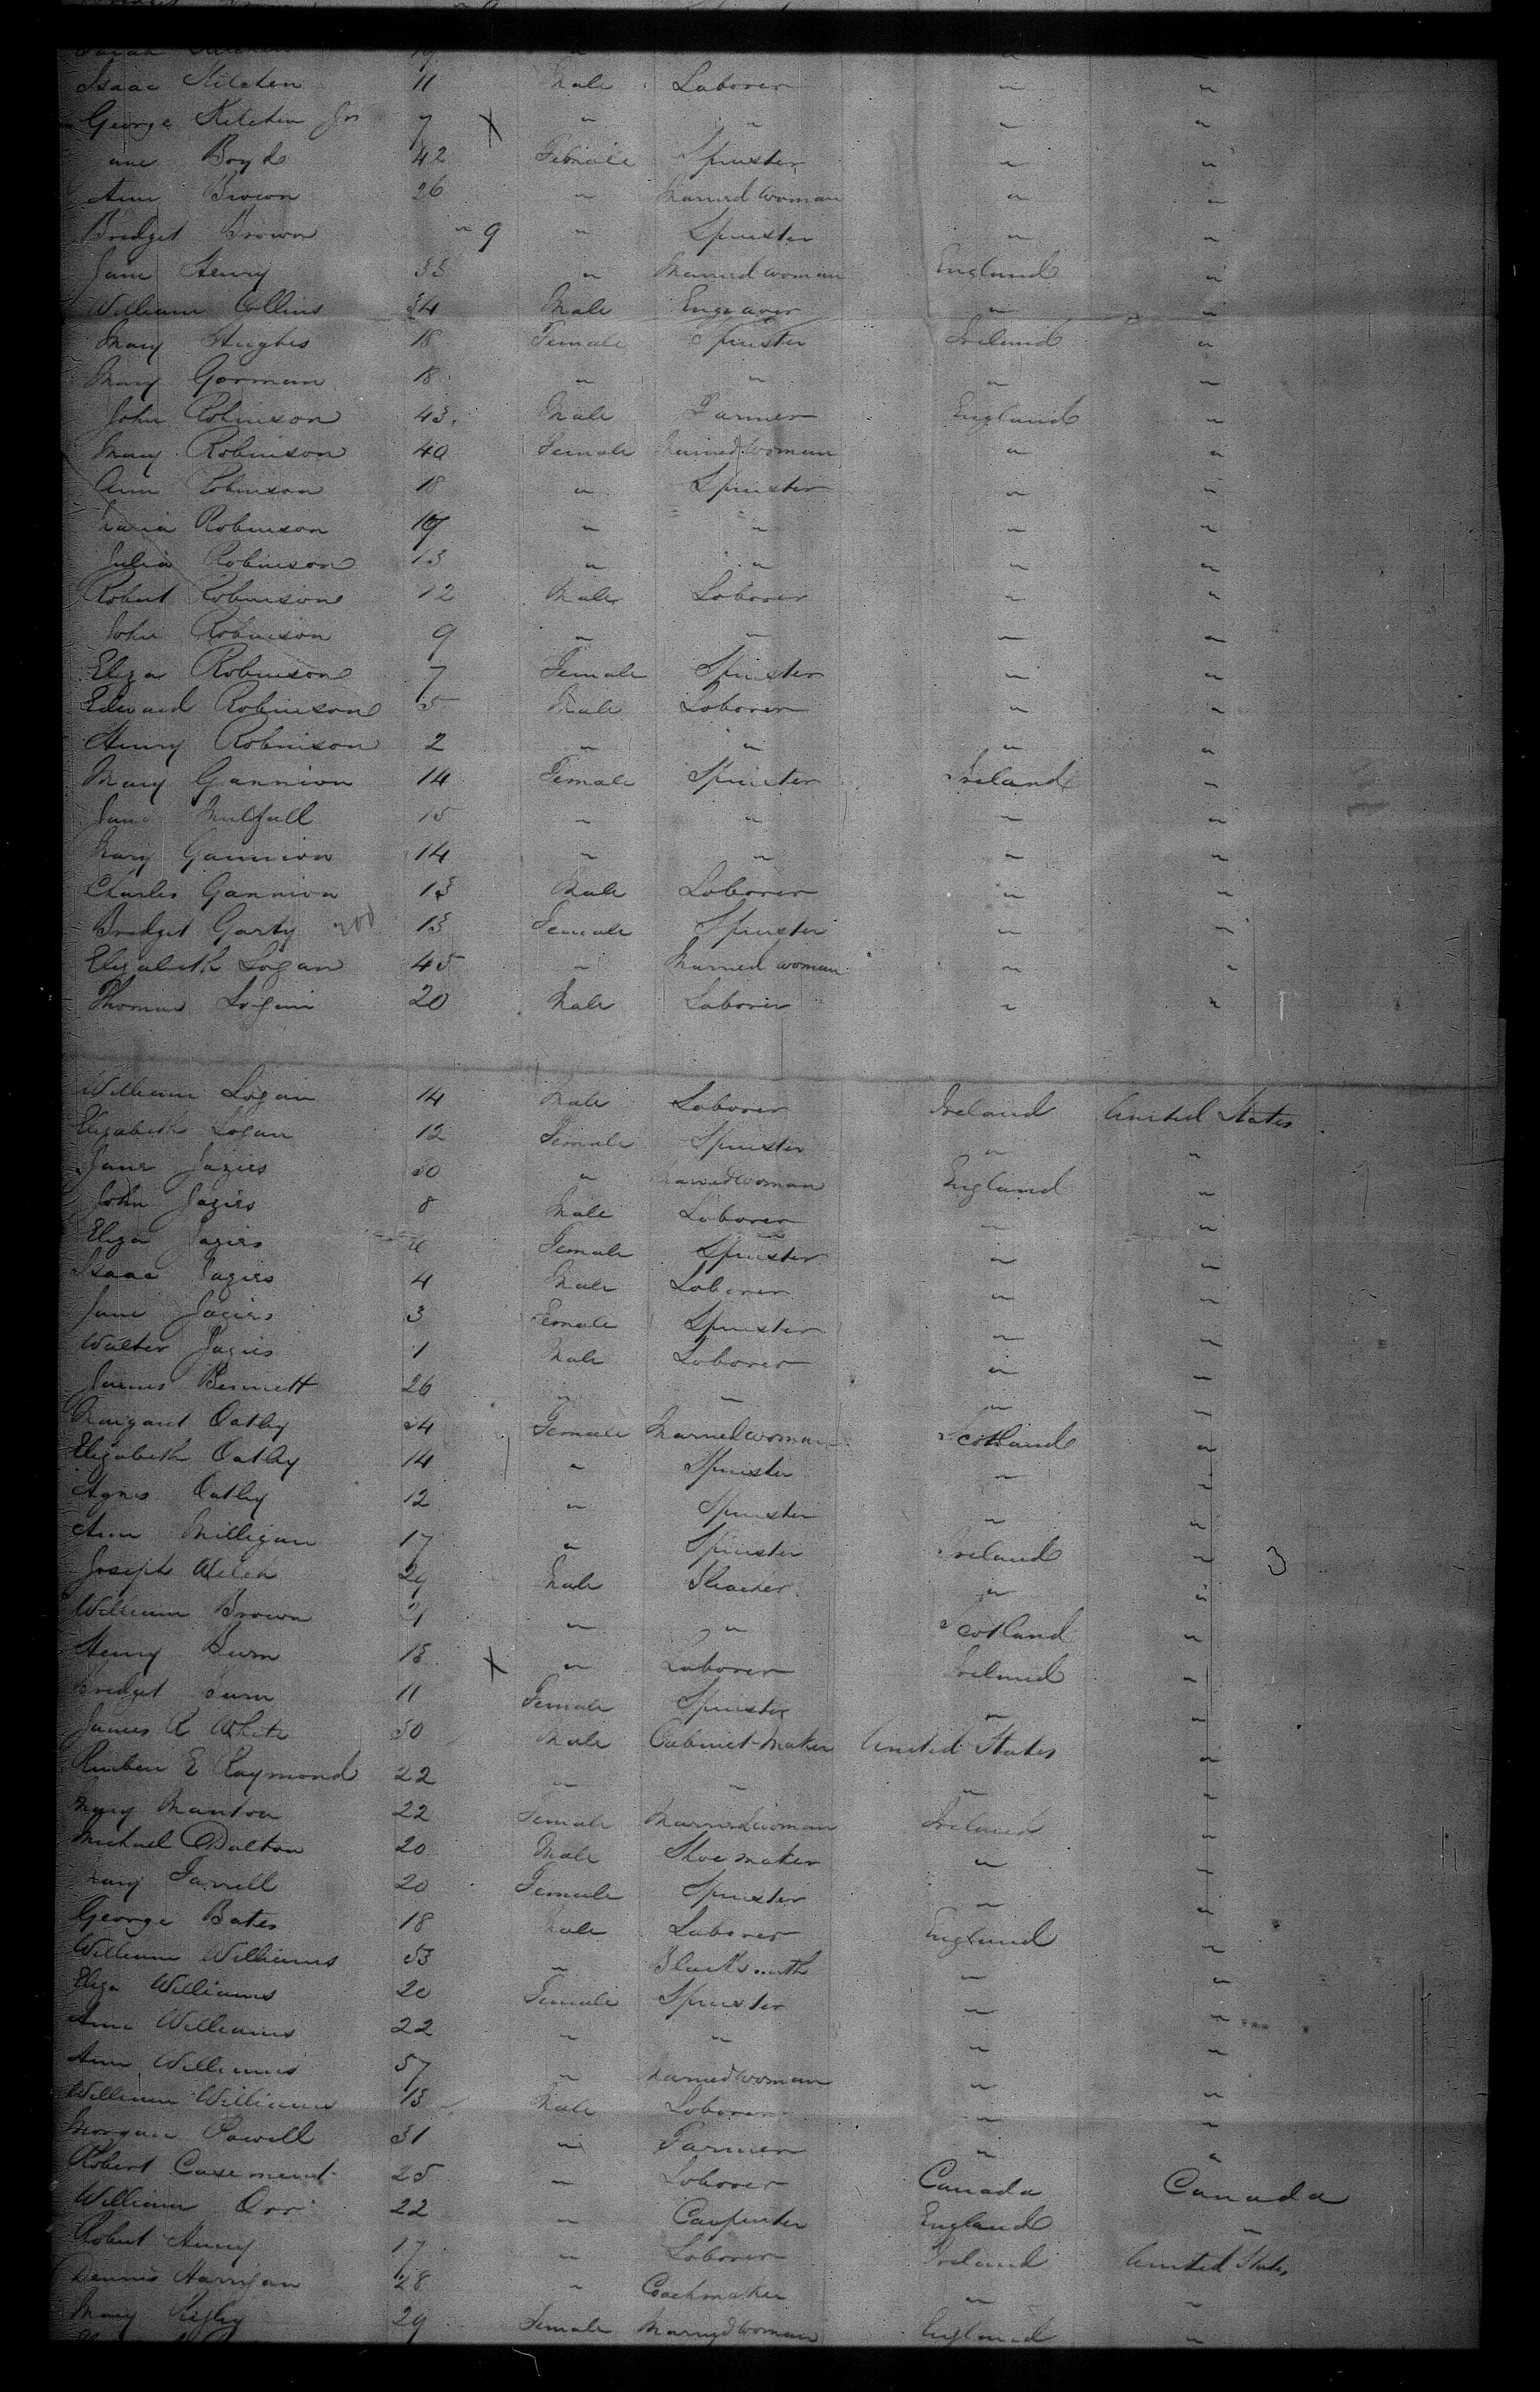 Isaac Kitchen 11 Male Laborer " "
George Kitchen Jr 7 X " " " "
Boyd 42 Female Spinster " "
Ann Brown 26 " Married woman " "
Bridget Brown " 9 " Spinster " "
Jane Henry 33 " Married woman England "
William Collins 34 Male Engraver " "
Mary Hughes 18 Female Spinster Ireland "
Mary Gorman 18 " " " "
John Robinson 43 Male Farmer England "
Mary Robinson 40 Female Married woman " "
Ann Robinson 18 " Spinster " "
Maria Robinson " " " "
Julia Robinson 13 " " " "
Robert Robinson 12 Male Laborer " "
John Robinson 9 " " " "
Eliza Robinson 7 Female Spinster " "
Edward Robinson 5 Male Laborer " "
Henry Robinson 2 " " " "
Mary Gannion 14 Female Spinster Ireland "
Jane Mulfall 15 " " " "
Mary Gannion 14 " " " "
Charles Gannion 13 Male Laborer " "
Bridget Garty 200 13 Female Spinster " "
Elizabeth Logan 45 " Married woman " "
Thomas Logan 20 Male Laborer " "
William Logan 14 Male Laborer Ireland United States
Elizabeth Logan 12 Female Spinster " "
Jane Jagies 30 " Married woman England "
John Jagies 8 Male Laborer " "
Eliza Jagies Female Spinster " "
Isaac Jagies 4 Male Laborer " "
Jane Jagies 3 Female Spinster " "
Walter Jagies 1 Male Laborer " "
James Bennett 26 " " " "
Margaret Oatley 34 Female Married woman Scotland "
Elizabeth Oatley 14 " Spinster " "
Agnes Oatley 12 " Spinster " "
Ann Milligan 17 " Spinster Ireland " 3
Joseph Welch 29 Male " "
William Brown " " Scotland "
Henry Burn 13 X " Laborer Ireland "
Bridget Burn 11 Female Spinster " "
James R White 30 Male Cabinet-Maker United States "
Reuben E Raymond 22 " " " "
Mary Manton 22 Female Married woman Ireland "
Michael Dalton 20 Male Shoe maker " "
Mary Farrell 20 Female Spinster " "
George Bates 18 Male Laborer England "
William Williams 53 " Blacksmith " "
Eliza Williams 20 Female Spinster " "
Ann Williams 22 " " " "
Ann Williams 57 " Married woman " "
William Williams 13 Male Laborer " "
Morgan Powell 31 " Farmer " "
Robert Casement 25 " Laborer Canada Canada
William Orr 22 " Carpenter England "
Robert Henry 17 " Laborer Ireland United States
Dennis Harrigan 28 " Coachmaker " "
Mary 29 Female Married woman England "